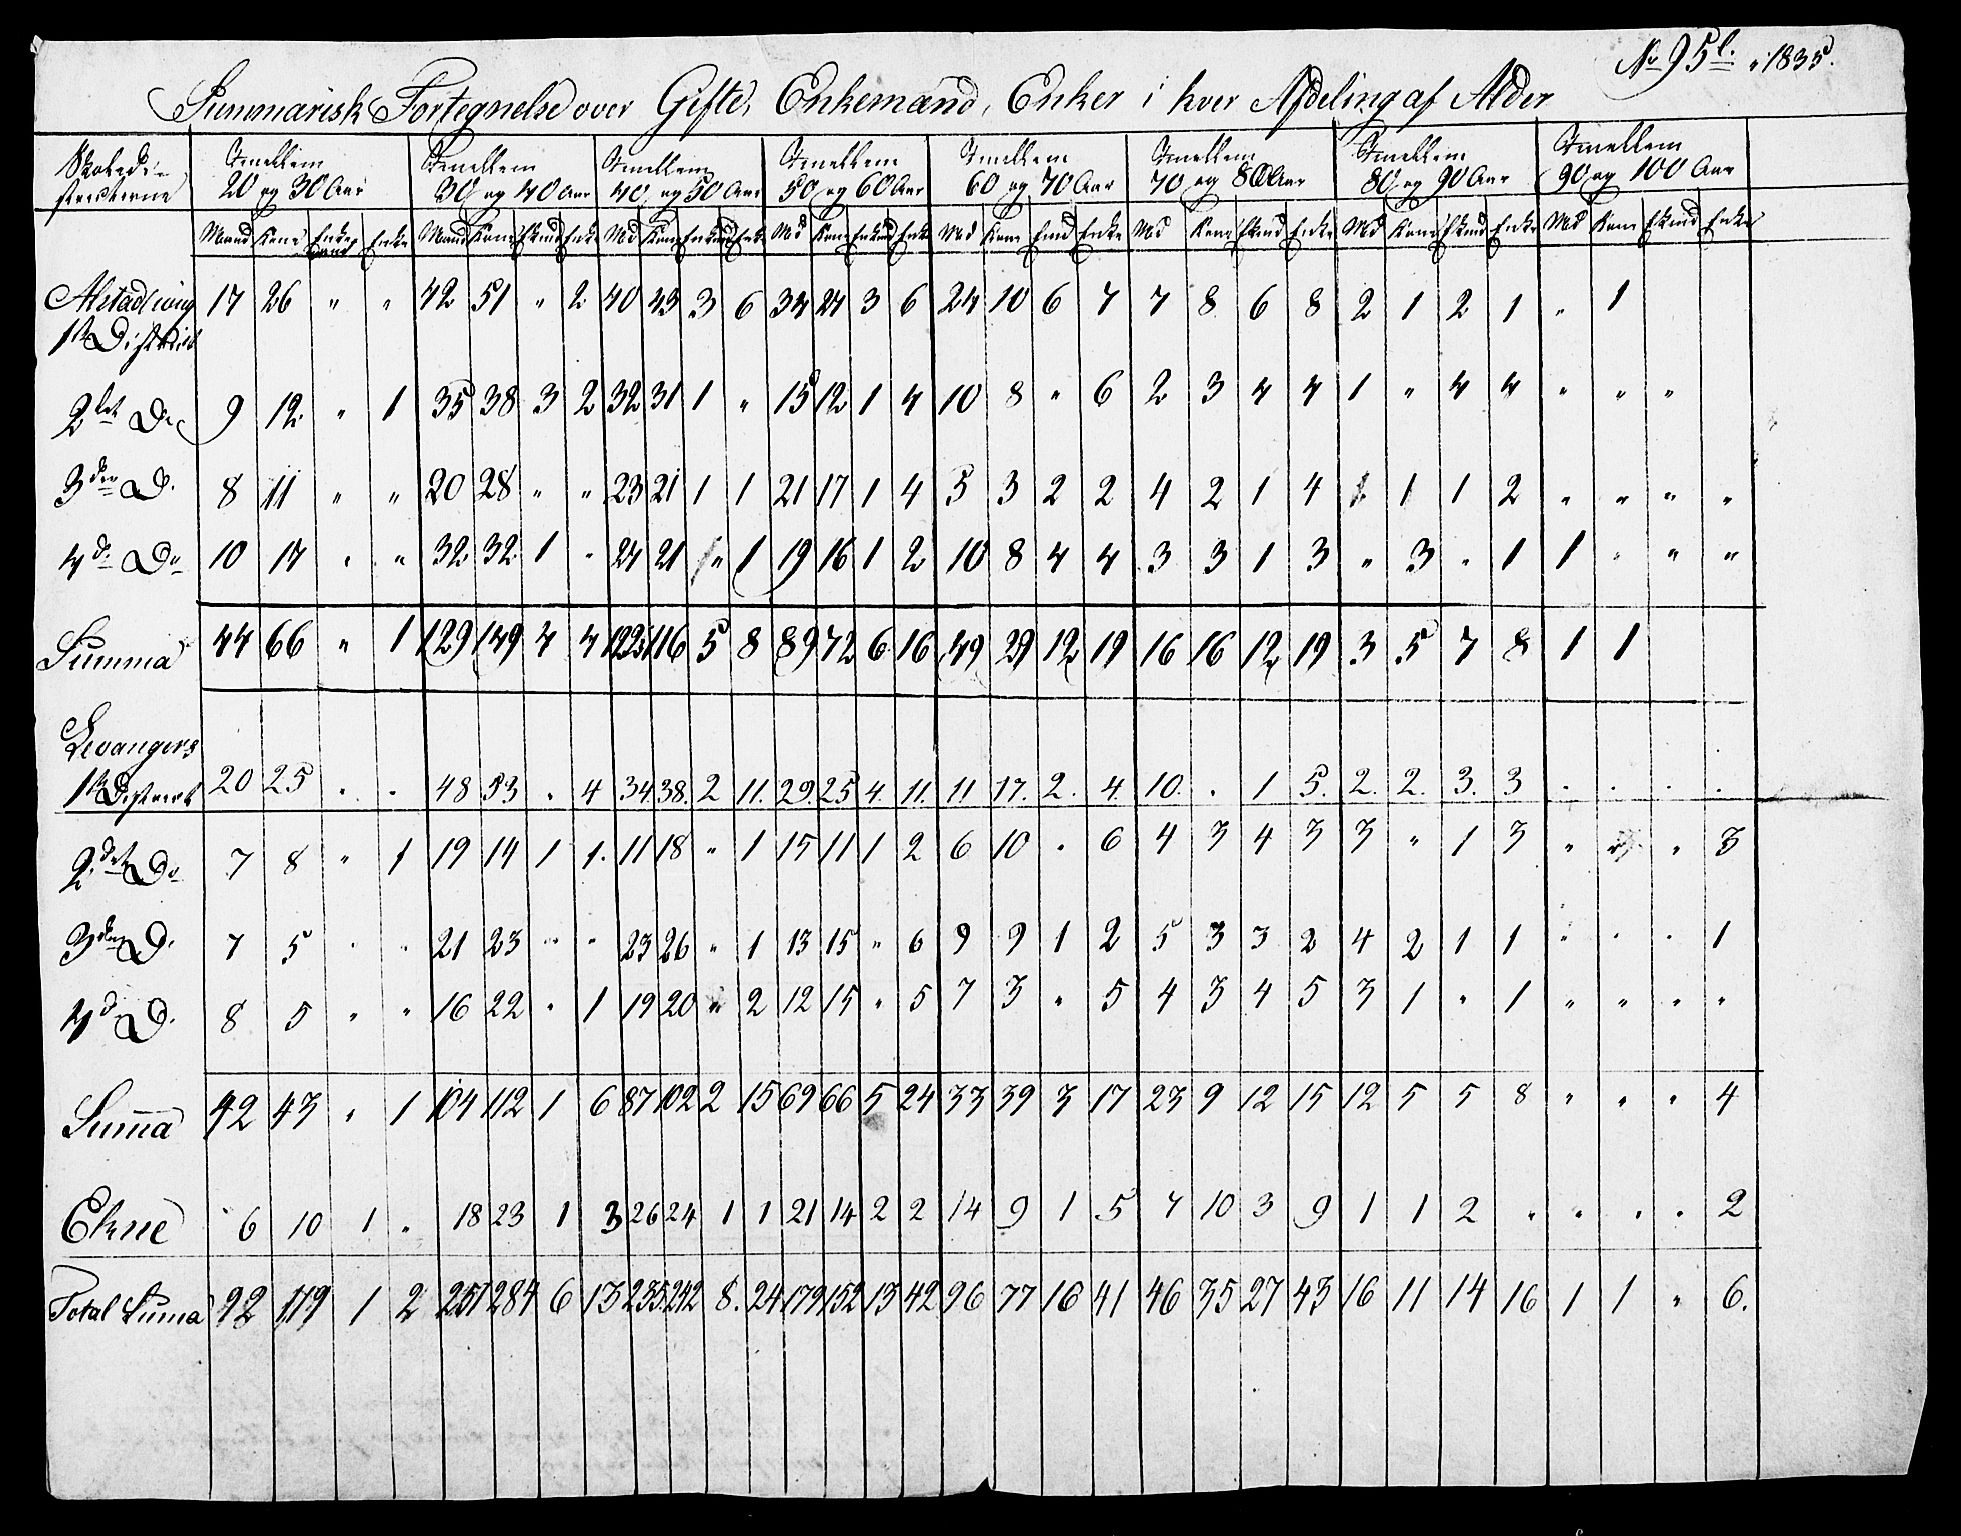 No 95 l. 1835.
Summarisk Fortegnelse over Gifte, Enkemænd, Enker i hver Afdeling af Alder
Skoledi- Imellem Imellem Imellem Imellem Imellem Imellem Imellem Imellem
stricterne 20 og 30 Aar 30 og 40 Aar 40 og 50 Aar 50 og 60 Aar 60 og 70 Aar 70 og 80 Aar 80 og 90 Aar 90 og 100 Aar
Mand Kone Enke Mand Kone Enke Md Kone Enke Md Kone Enke Md Kone Enke Md Kone Enke Md Kone Enke Md Kone Enke
17 26 " " 42 51 " 2 40 43 3 6 34 27 3 6 24 10 6 7 7 8 6 8 2 1 2 1 " 1
1st District
2det Do 9 12 " 1 35 38 3 2 32 31 1 " 15 12 1 4 10 8 " 6 2 3 4 4 1 " 4 4 " " "
3die D. 8 11 " " 20 28 " " 23 21 1 1 21 17 1 4 5 3 2 2 4 2 1 4 1 1 2 " " " "
4de Do 10 17 " " 32 32 1 " 27 21 " 1 19 16 1 2 10 8 4 4 3 3 1 3 " 3 " 1 1 " " "
Summa 44 66 " 1 129 149 4 4 122 116 5 8 89 72 6 16 49 29 12 19 16 16 12 19 3 5 7 8 1 1
Levangers
1st District 20 25 . . 48 53 . 4 34 38. 2 11. 29. 25 4. 11. 11 17. 2. 4. 10. . 1 5. 2. 2. 3. 3 . . . .
2det Do 7 8 " 1 19 14 1 1. 11 18 " 1 15 11 1 2 6 10 . 6 4 3 4 3 3 " 1 3 " " 3
3die D. 7 5 . . 21 23 " " 23 26 " 1 13 15 " 6 9 9 1 2 5 3 3 2 4 2 1 1 " . . 1
4de D. 8 5 " " 16 22 " 1 19 20 " 2 12 15 " 5 7 3 " 5 4 3 4 5 3 1 " 1 " " " "
Suma 42 43 " 1 104 112 1 6 87 102 2 15 69 66 5 24 33 39 3 17 23 9 12 15 12 5 5 8 " " " 4
Ekne 6 10 1 . 18 23 1 3 26 24 1 1 21 14 2 2 14 9 1 5 7 10 3 9 1 1 2 . . . . 2
Total Suma 92 119 1 2 251 284 6 13 235 242 8. 24 179 152 13 42 96 77 16 41 46 35 27 43 16 11 14 16 1 1 " 6.